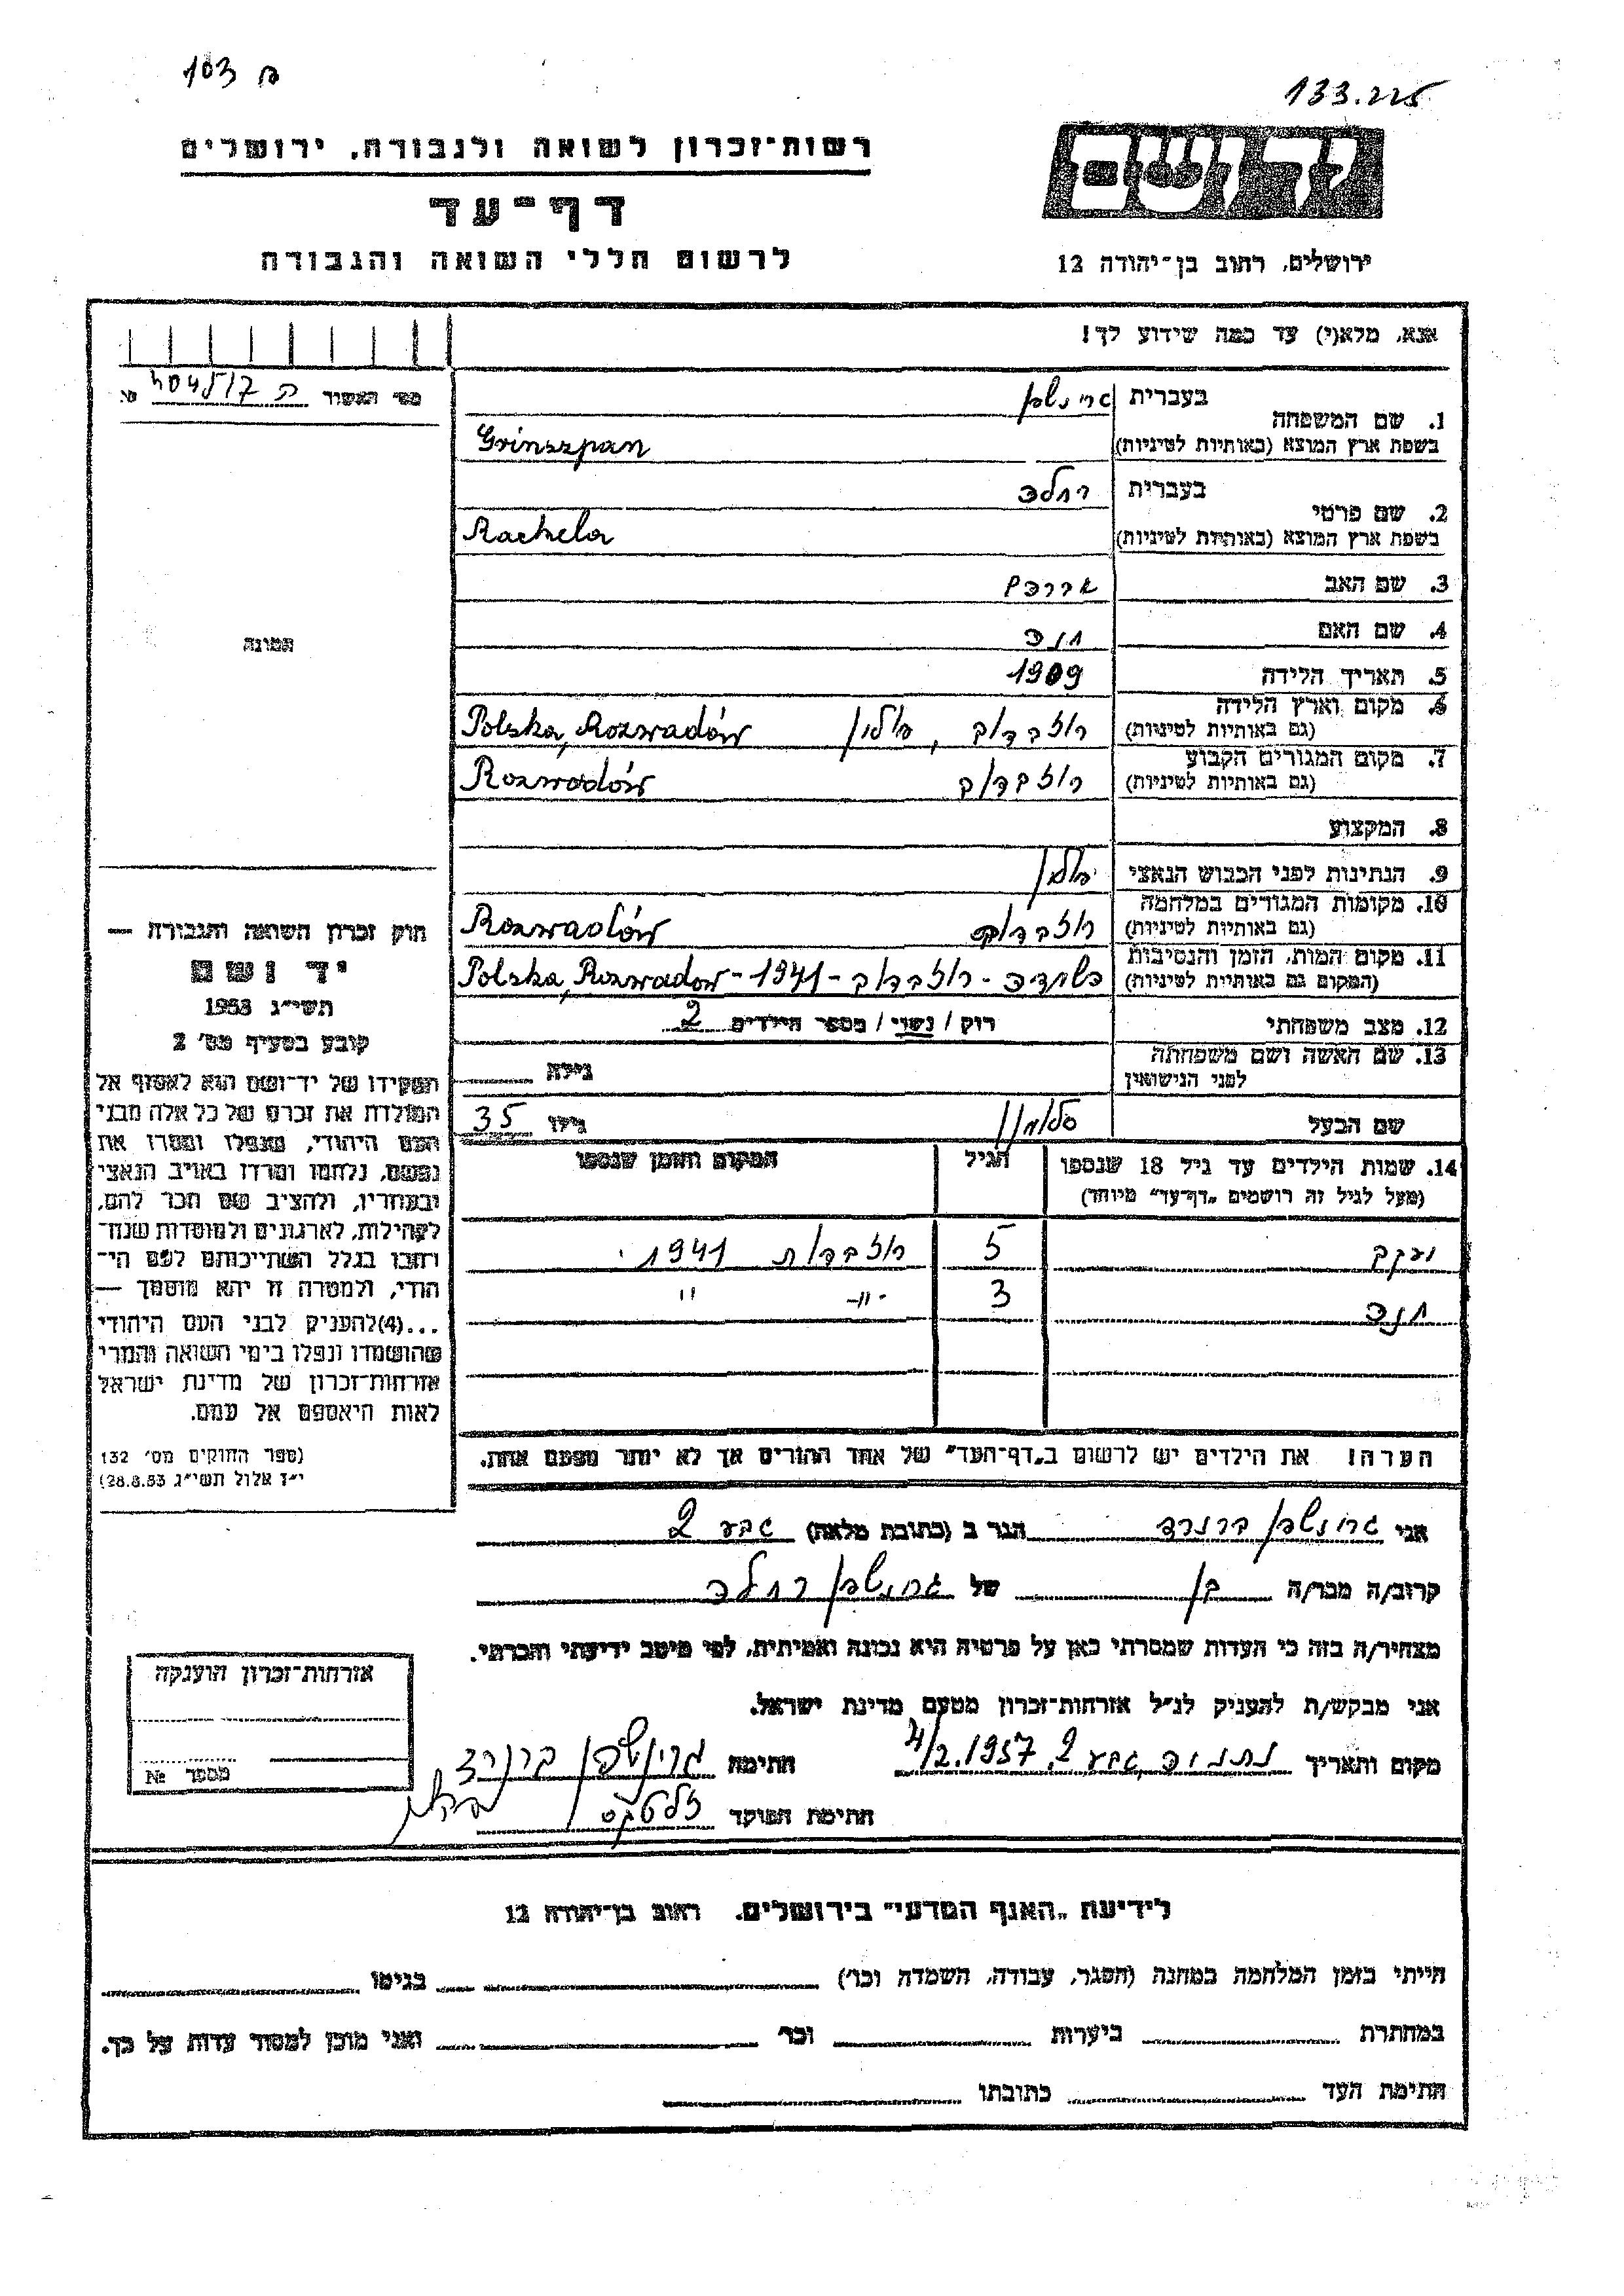 103 ם
133.225
רשות־זכרון לשואה ולגבורה, ירושלים
דף־עד
לרשום חללי השואה והגבורה
יד ושם
ירושלים, רחוב בן־יהודה 12
אנא, מלא(י) עד כמה שידוע לך!
1. שם המשפחה
בעברית גרינשפן
בשפת ארץ המוצא (באותיות לטיניות) Grinszpan
2. שם פרטי
בעברית רחלה
בשפת ארץ המוצא (באותיות לטיניות) Rachela
3. שם האב אברהם
4. שם האם חנה
5. תאריך הלידה 1909
6. מקום וארץ הלידה
(גם באותיות לטיניות) רוזבדוב, פולין Polska, Rozwadów
7. מקום המגורים הקבוע
(גם באותיות לטיניות) רוזבדוב Rozwadów
8. המקצוע
9. הנתינות לפני הכבוש הנאצי
10. מקומות המגורים במלחמה
(גם באותיות לטיניות) רוזבדוב Rozwadów
11. מקום המות, הזמן והנסיבות
(המקום גם באותיות לטיניות) בשואה - רוזבדוב - 1941 - Polska, Rozwadow
12. מצב משפחתי רוק / נשוי / מספר הילדים 2
13. שם האשה ושם משפחתה
לפני הנישואין גילה
שם הבעל סלומון גילו 35
14. שמות הילדים עד גיל 18 שנספו הגיל המקום והזמן שנספו
(מעל לגיל זה רושמים „דף־עד" מיוחד)
יעקב 5 רוזבדוב 1941
חנה 3 -״- ״
הערה! את הילדים יש לרשום ב„דף־העד" של אחד ההורים אך לא יותר מפעם אחת.
מס׳ האשור
תמונה
חוק זכרון השואה והגבורה —
יד ושם
תשי״ג 1953
קובע בסעיף מס׳ 2
תפקידו של יד־ושם הוא לאסוף אל
המולדת את זכרם של כל אלה מבני
העם היהודי, שנפלו ומסרו את
נפשם, נלחמו ומרדו באויב הנאצי
ובעוזריו, ולהציב שם וזכר להם,
לקהילות, לארגונים ולמוסדות שנח־
רבו בגלל השתייכותם לעם הי־
הודי, ולמטרה זו יהא מוסמך —
...(4) להעניק לבני העם היהודי
שהושמדו ונפלו בימי השואה והמרי
אזרחות־זכרון של מדינת ישראל
לאות היאספם אל עמם.
(ספר החוקים מס׳ 132
י״ז אלול תשי״ג 28.8.53)
אני גרינשפן ברנרד הגר ב (כתובת מלאה) גבע 2
קרוב/ה מכר/ה בן של גרינשפן רחלה
מצהיר/ה בזה כי העדות שמסרתי כאן על פרטיה היא נכונה ואמיתית, לפי מיטב ידיעתי והכרתי.
אני מבקש/ת להעניק לנ״ל אזרחות־זכרון מטעם מדינת ישראל.
מקום ותאריך נתניה, גבע 2, 4/2.1957 חתימה גרינשפן ברנרד
חתימת הפוקד
אזרחות־זכרון הוענקה
מספר №
לידיעת „האגף המדעי" בירושלים. רחוב בן־יהודה 12
הייתי בזמן המלחמה במחנה (הסגר, עבודה, השמדה וכו׳) בגיטו
במחתרת ביערות וכו׳ ואני מוכן למסור עדות על כך.
חתימת העד כתובתו